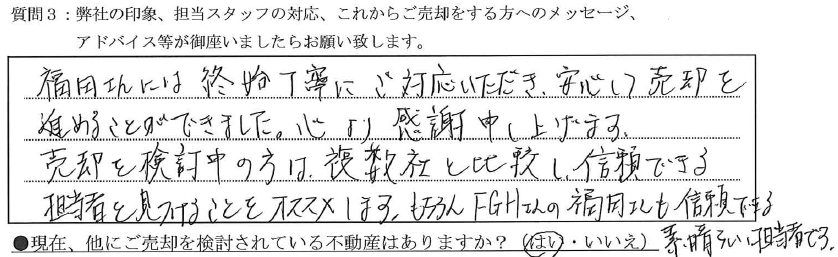 質問3：弊社の印象、担当スタッフの対応、これからご売却をする方へのメッセージ、
アドバイス等が御座いましたらお願い致します。
福田さんには終始丁寧にご対応いただき、安心して売却を
進めることができました。心より感謝申し上げます。
売却を検討中の方は、複数社と比較し、信頼できる
担当者を見つけることをオススメします。もちろんFGHさんの福田さんも信頼できる
素晴らしい担当者です。
●現在、他にご売却を検討されている不動産はありますか？（はい・いいえ）